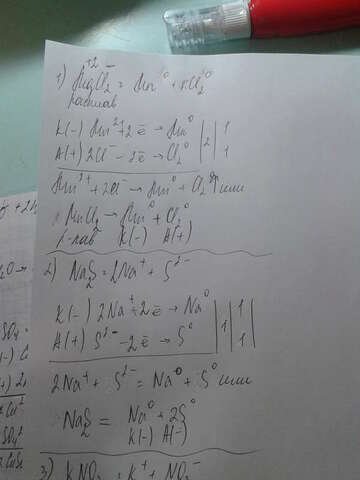 +2 -
1) MgCl₂ = Mn⁰ + nCl₂⁰
расплав
K(-) Mn²⁺ + 2ē → Mn⁰ | 2 | 1
A(+) 2Cl⁻ - 2ē → Cl₂⁰ | 1
Mn²⁺ + 2Cl⁻ → Mn⁰ + Cl₂⁰ или
MnCl₂ → Mn⁰ + Cl₂⁰
р-лав K(-) A(+)
2) Na₂S = 2Na⁺ + S²⁻
K(-) 2Na⁺ + 2ē → Na⁰ | 1 | 1
A(+) S²⁻ - 2ē → S⁰ | 1
2Na⁺ + S²⁻ = Na⁰ + S⁰ или
Na₂S = Na⁰ + 2S⁰
K(-) A(-)
3) KNO₃ = K⁺ + NO₃⁻